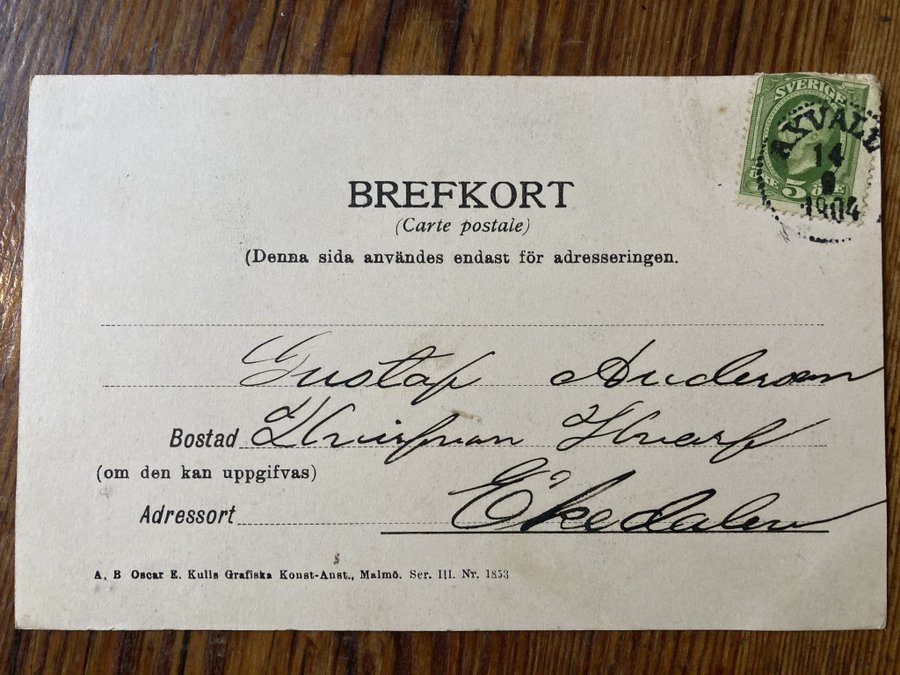 SVERIGE
5 ÖRE
AXVALL
14
9
1904
BREFKORT
(Carte postale)
(Denna sida användes endast för adresseringen.
Gustaf Anderson
Bostad
(om den kan uppgifvas)
Adressort Ekedalen
A. B Oscar E. Kulls Grafiska Konst-Anst., Malmö. Ser. III. Nr. 1853